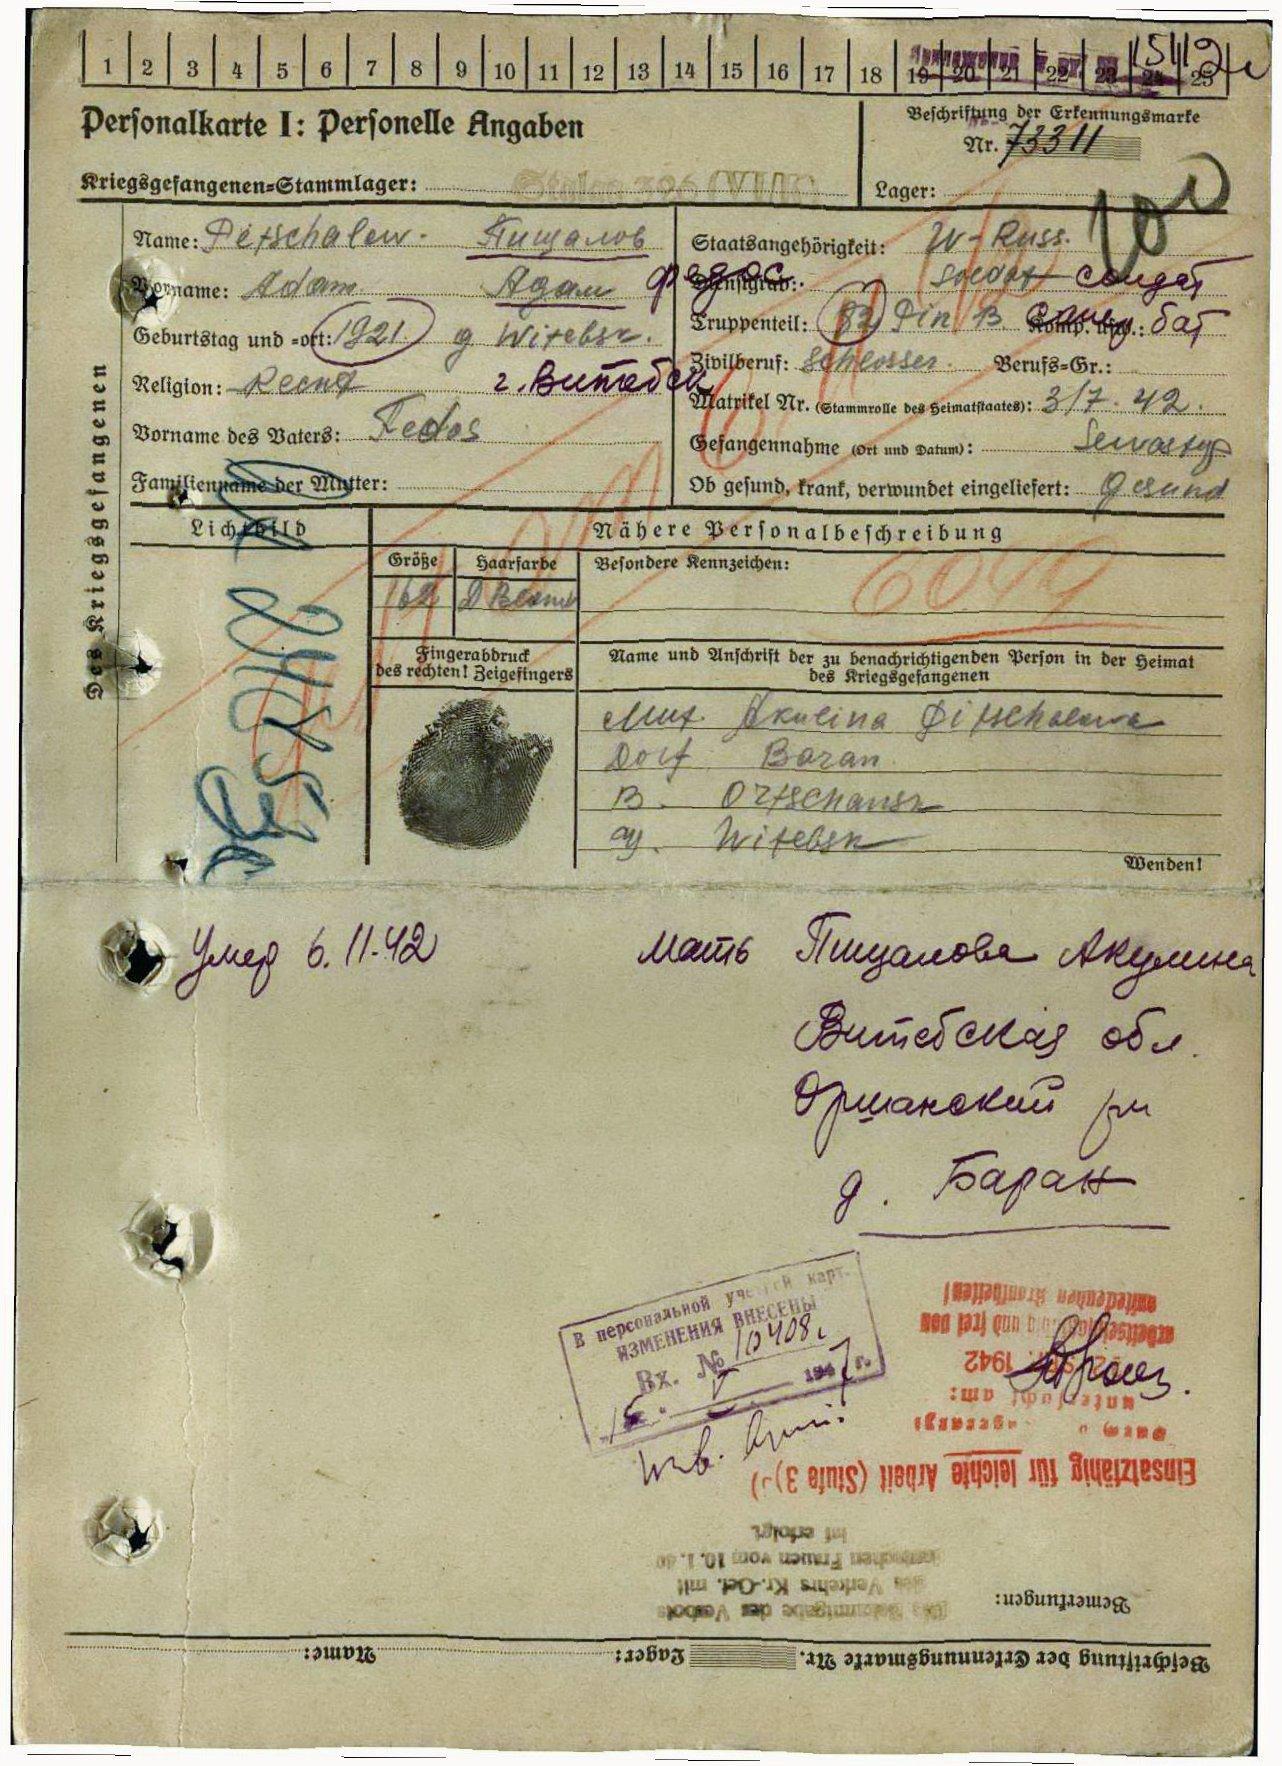 1 2 3 4 5 6 7 8 9 10 11 12 13 14 15 16 17 18 19 20 21 22 23 24 25
Personalkarte I: Personelle Angaben
Beschriftung der Erkennungsmarke
Nr. 73311
Kriegsgefangenen-Stammlager: Stalag 326 (VI K)
Lager:
Des Kriegsgefangenen
Name: Pitschalow. Пищалов
Vorname: Adam Адам Федос.
Geburtstag und -ort: 1921 g Witebsk.
Religion: г. Витебск
Vorname des Vaters: Fedos
Familienname der Mutter:
Staatsangehörigkeit: W-Russ.
Dienstgrad: Soldat солдат
Truppenteil: 82 Pin B. Komp. usw.: Сапер бат
Zivilberuf: Schlosser. Berufs-Gr.:
Matrikel Nr. (Stammrolle des Heimatstaates): 3/7. 42.
Gefangennahme (Ort und Datum): Sewastop
Ob gesund, krank, verwundet eingeliefert: Gesund
Lichtbild
Nähere Personalbeschreibung
Größe
Haarfarbe
Besondere Kennzeichen:
162
D Blond
Fingerabdruck
des rechten! Zeigefingers
Name und Anschrift der zu benachrichtigenden Person in der Heimat
des Kriegsgefangenen
Mut. Akulina Pitschalowa
Dorf Baran
B. Ortschansk
g. Witebsk
Wenden!
Умер 6.11.42
мать Пищалова Акулина
Витебская обл.
Оршанский рн
д. Баран
В персональной учетной карт.
ИЗМЕНЕНИЯ ВНЕСЕНЫ
Вх. № 10408с
15. V 1947 г.
ansteckenden Krankheiten!
arbeitseinsatzfähig und frei von
1942
untersucht am:
Einsatzfähig für leichte Arbeit (Stufe 3)
ist erfolgt.
deutschen Frauen vom 10.1.40
des Verkehrs Kr.-Gef. mit
Die Bekanntgabe des Verbots
Bemerkungen:
Beschriftung der Erkennungsmarke Nr. Lager: Name: